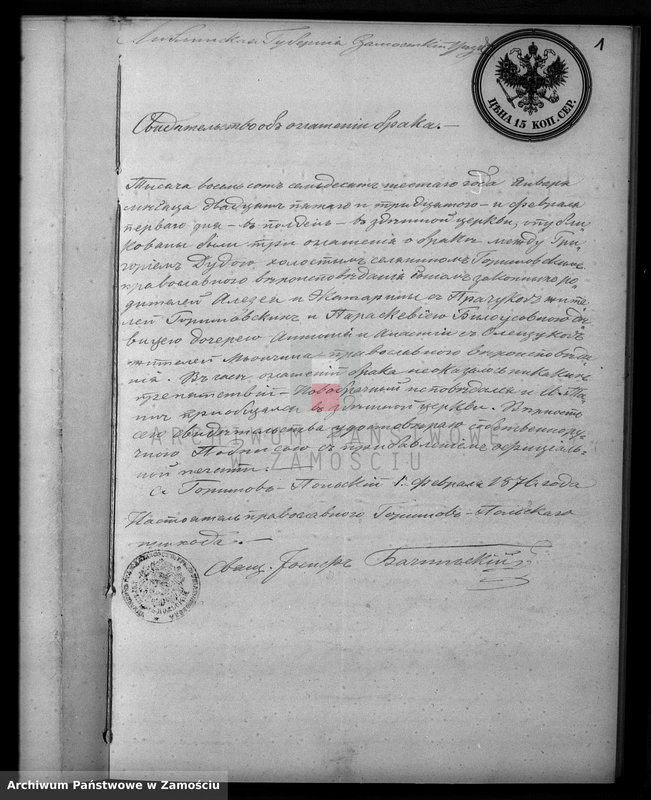 Люблинская Губернія Замостскій уѣздъ
1
ЦѢНА 15 КОП. СЕР.
Свидѣтельство объ оглашеніи брака.—
Тысяча восемьсотъ семьдесятъ шестаго года Января
мѣсяца двадцать пятаго и тридцатаго – и февраля
перваго дня – въ полдень – въ здѣшной церкви, опубли
кованы были три оглашенія о бракѣ между Гри
горіемъ Дудою холостымъ селяниномъ
православного вѣроисповѣданія сыномъ законныхъ ро
дителей Алексея и Катарины съ жите
лей и Параскевією Билоусовною дѣ
вицею дочерею и Анастасіи съ Олещуковъ
жителей православного вѣроисповѣда
нія. Въ часѣ оглашеній брака неоказалось никакихъ
препятствій – Новобрачный исповѣдался и Св. Та
инъ пріобщался въ здѣшной церкви. Вѣрность
сего свидѣтельства удостовѣряю собственнору
чною Подписью съ прибавленіемъ офиціаль
ной печати.
С. Горышовъ – Польскій 1. Февраля 1876 года
Настоятель православного Горышовъ – Польскаго
прихода.—
Свящ. Іосифъ
ARCHIWUM PAŃSTWOWE
ZAMOŚCIU
Archiwum Państwowe w Zamościu